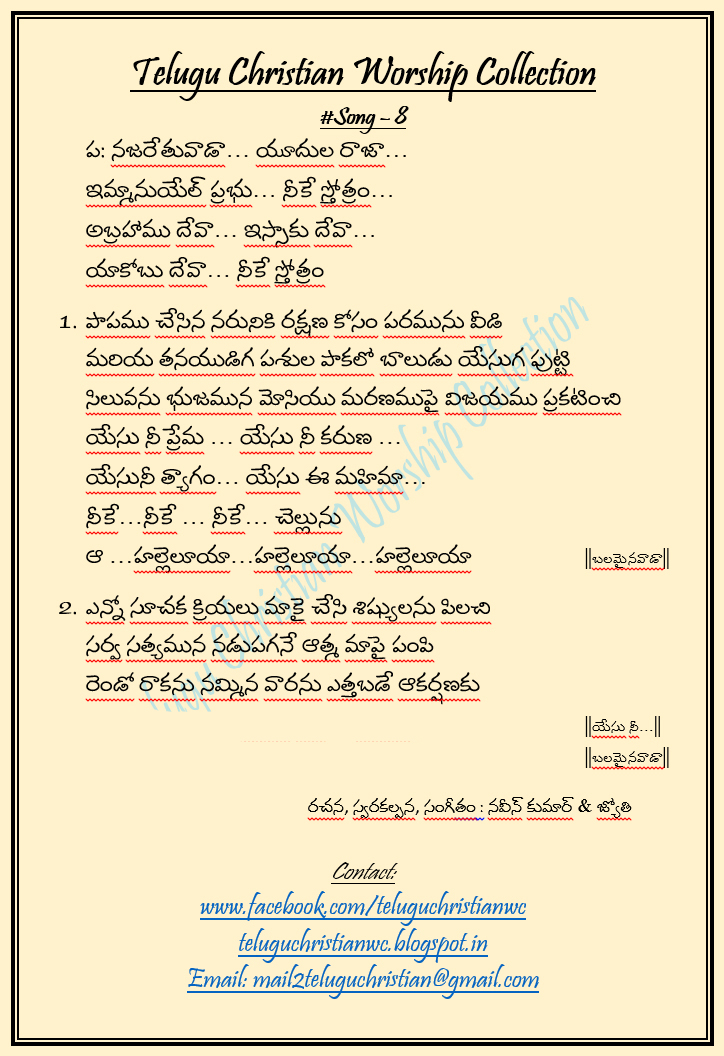 Telugu Christian Worship Collection
#Song – 8
ప: నజరేతువాడా... యూదుల రాజా...
ఇమ్మానుయేల్ ప్రభు... నీకే స్తోత్రం...
అబ్రహాము దేవా... ఇస్సాకు దేవా...
యాకోబు దేవా... నీకే స్తోత్రం
1. పాపము చేసిన నరునికి రక్షణ కోసం పరమును వీడి
మరియ తనయుడిగ పశుల పాకలో బాలుడు యేసుగ పుట్టి
సిలువను భుజమున మోసియు మరణముపై విజయము ప్రకటించి
యేసు నీ ప్రేమ ... యేసు నీ కరుణ ...
యేసునీ త్యాగం... యేసు ఈ మహిమా...
నీకే...నీకే ... నీకే... చెల్లును
ఆ ...హల్లెలూయా...హల్లెలూయా...హల్లెలూయా ||బలమైనవాడా||
2. ఎన్నో సూచక క్రియలు మాకై చేసి శిష్యులను పిలచి
సర్వ సత్యమున నడుపగనే ఆత్మ మాపై పంపి
రెండో రాకను నమ్మిన వారను ఎత్తబడే ఆకర్షణకు
||యేసు నీ...||
||బలమైనవాడా||
రచన, స్వరకల్పన, సంగీతం : నవీన్ కుమార్ & జ్యోతి
Contact:
www.facebook.com/teluguchristianwc
teluguchristianwc.blogspot.in
Email: mail2teluguchristian@gmail.com
Telugu Christian Worship Collection